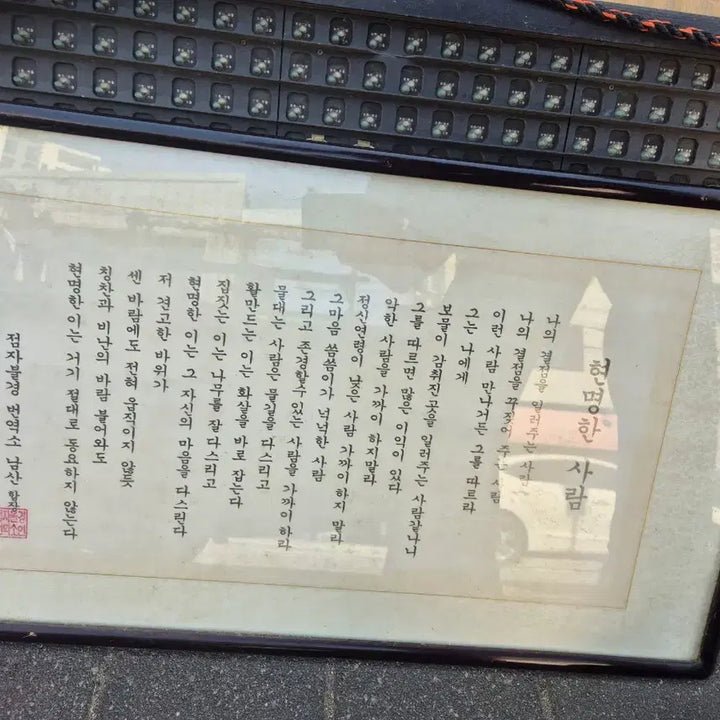 현명한 사람
나의 결점을 일러주는 사람
나의 결점을 꾸짖어 주는 사람
이런 사람 만나거든 그를 따르라
그는 나에게
보물이 감춰진 곳을 일러주는 사람같나니
그를 따르면 많은 이익이 있다
악한 사람을 가까이 하지말라
정신연령이 낮은 사람 가까이하지 말라
그마음 씀씀이가 넉넉한 사람
그리고 존경할수 있는 사람을 가까이 하라
물대는 사람은 물길을 다스리고
활만드는 이는 화살을 바로 잡는다
집짓는 이는 나무를 잘다스리고
현명한 이는 그 자신의 마음을 다스린다
저 견고한 바위가
센 바람에도 전혀 움직이지 않듯
칭찬과 비난의 바람 불어와도
현명한 이는 거기 절대로 동요하지 않는다
점자불경 번역소 남산 합장